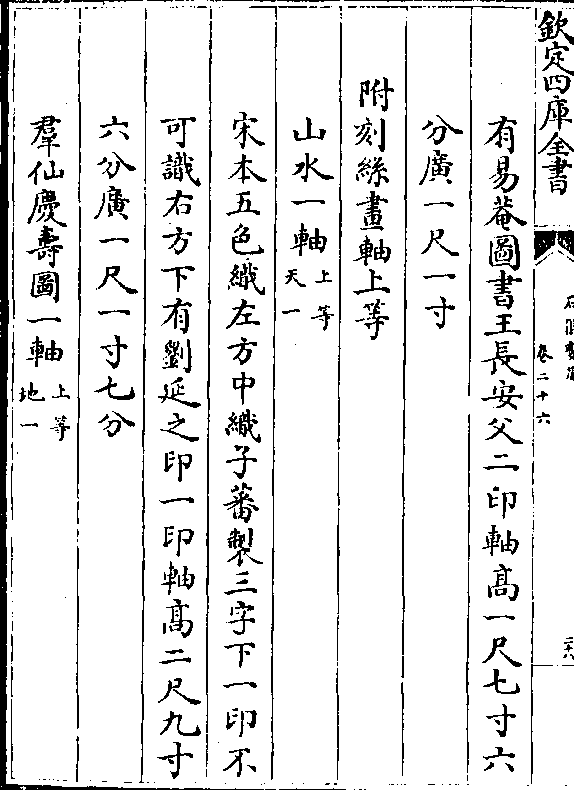 欽定四庫全書
卷二十六
有易菴圖書王長安父二印軸高一尺七寸六
分廣一尺一寸
附刻絲畫軸上等
山水一軸上等天一
宋本五色織左方中織子蕃製三字下一印不
可識右方下有劉延之印一印軸高二尺九寸
六分廣一尺一寸七分
羣仙慶壽圖一軸上等地一